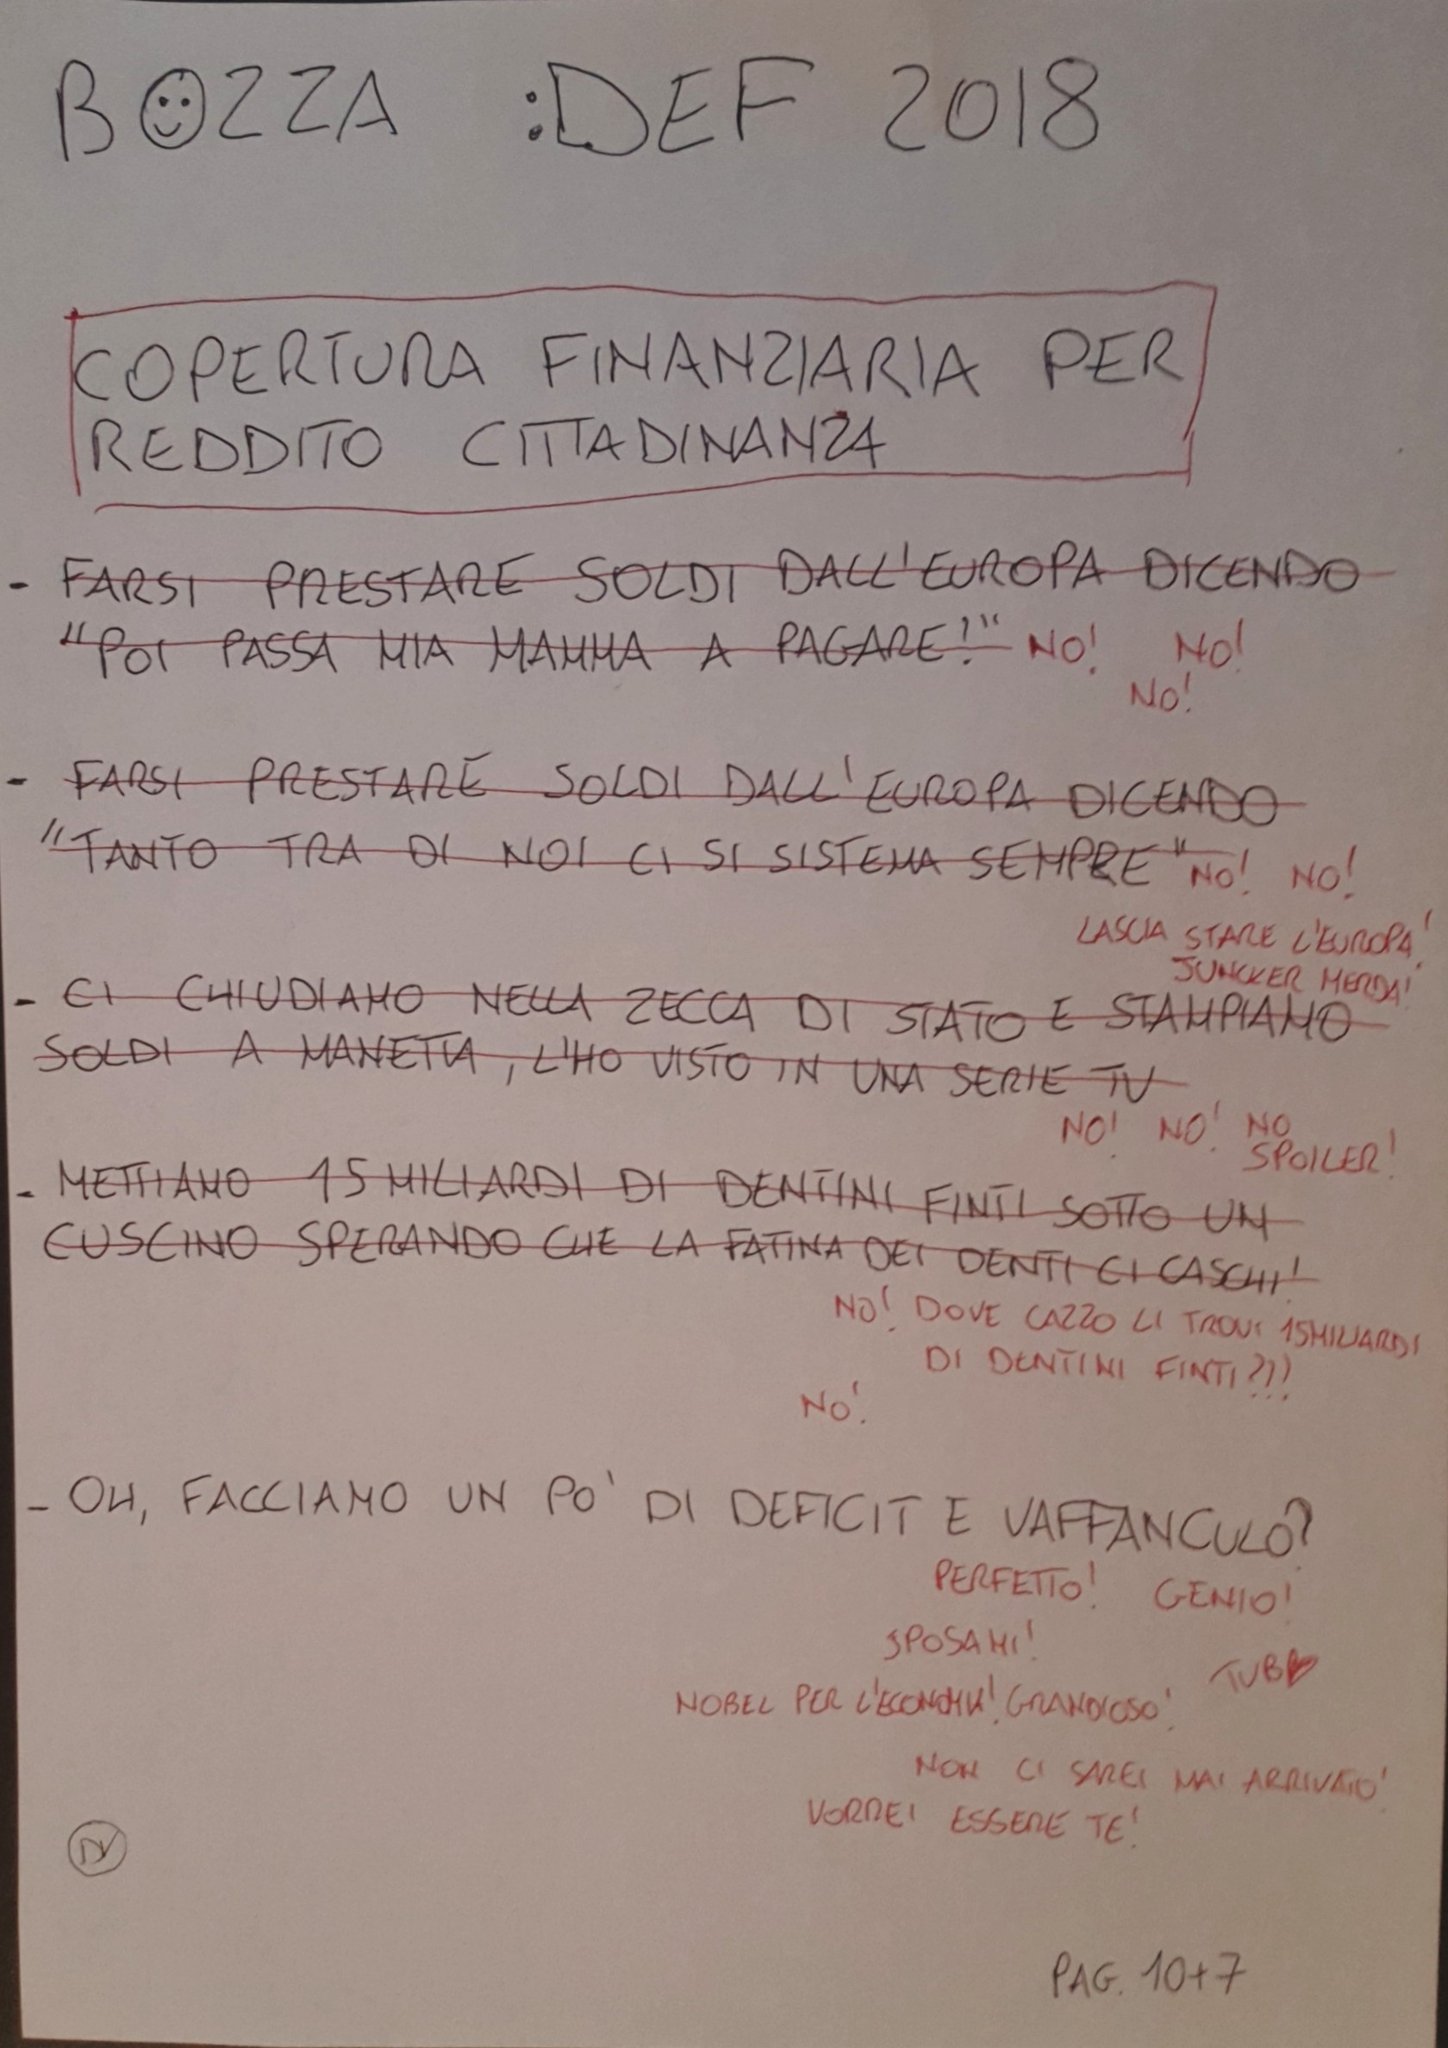 BOZZA :DEF 2018
COPERTURA FINANZIARIA PER
REDDITO CITTADINANZA
- FARSI PRESTARE SOLDI DALL'EUROPA DICENDO
"POI PASSA MIA MAMMA A PAGARE!" NO! NO!
NO!
- FARSI PRESTARE SOLDI DALL'EUROPA DICENDO
"TANTO TRA DI NOI CI SI SISTEMA SEMPRE" NO! NO!
LASCIA STARE L'EUROPA!
JUNCKER MERDA!
- CI CHIUDIAMO NELLA ZECCA DI STATO E STAMPIAMO
SOLDI A MANETTA, L'HO VISTO IN UNA SERIE TV
NO! NO! NO
SPOILER!
- METTIAMO 15 MILIARDI DI DENTINI FINTI SOTTO UN
CUSCINO SPERANDO CHE LA FATINA DEI DENTI CI CASCHI!
NO! DOVE CAZZO LI TROVI 15 MILIARDI
DI DENTINI FINTI?!!
NO!
- OH, FACCIAMO UN PO' DI DEFICIT E VAFFANCULO?
PERFETTO! GENIO!
SPOSAMI!
TUB❤
NOBEL PER L'ECONOMIA! GRANDIOSO!
NON CI SAREI MAI ARRIVATO!
VORREI ESSERE TE!
DV
PAG. 10+7